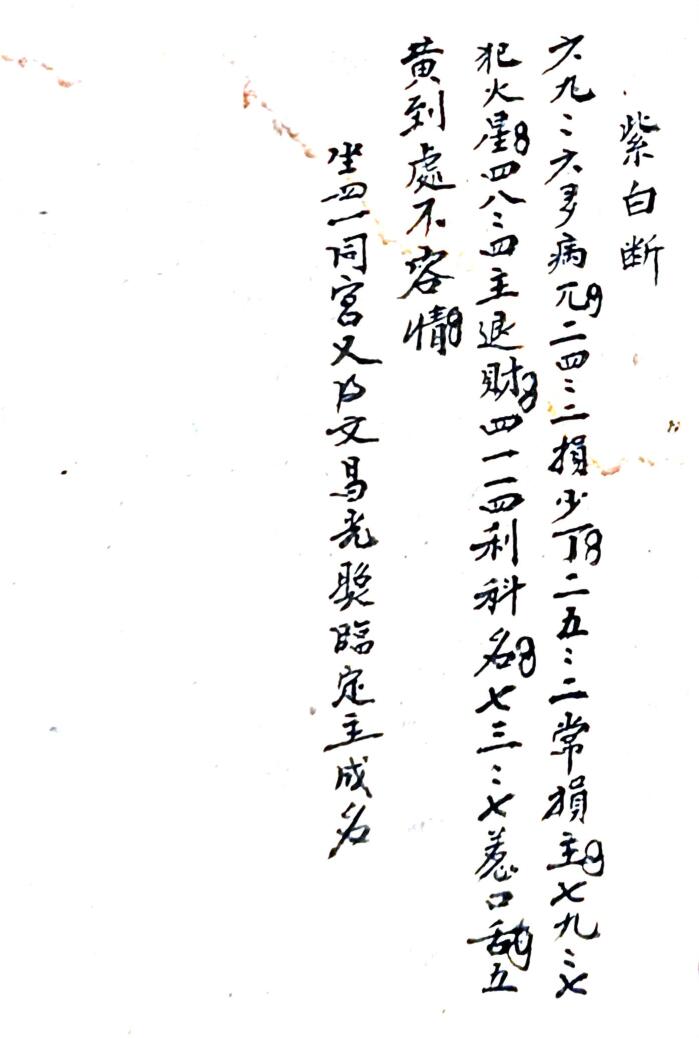 紫白断
六九〻六多病兀二四〻二損少丁二五〻二常損主七九〻七
犯火星四八〻四主退財四一一四利科名七三〻七惹口舌五
黄到處不容情
坐四一同宮又为文昌 臨定主成名